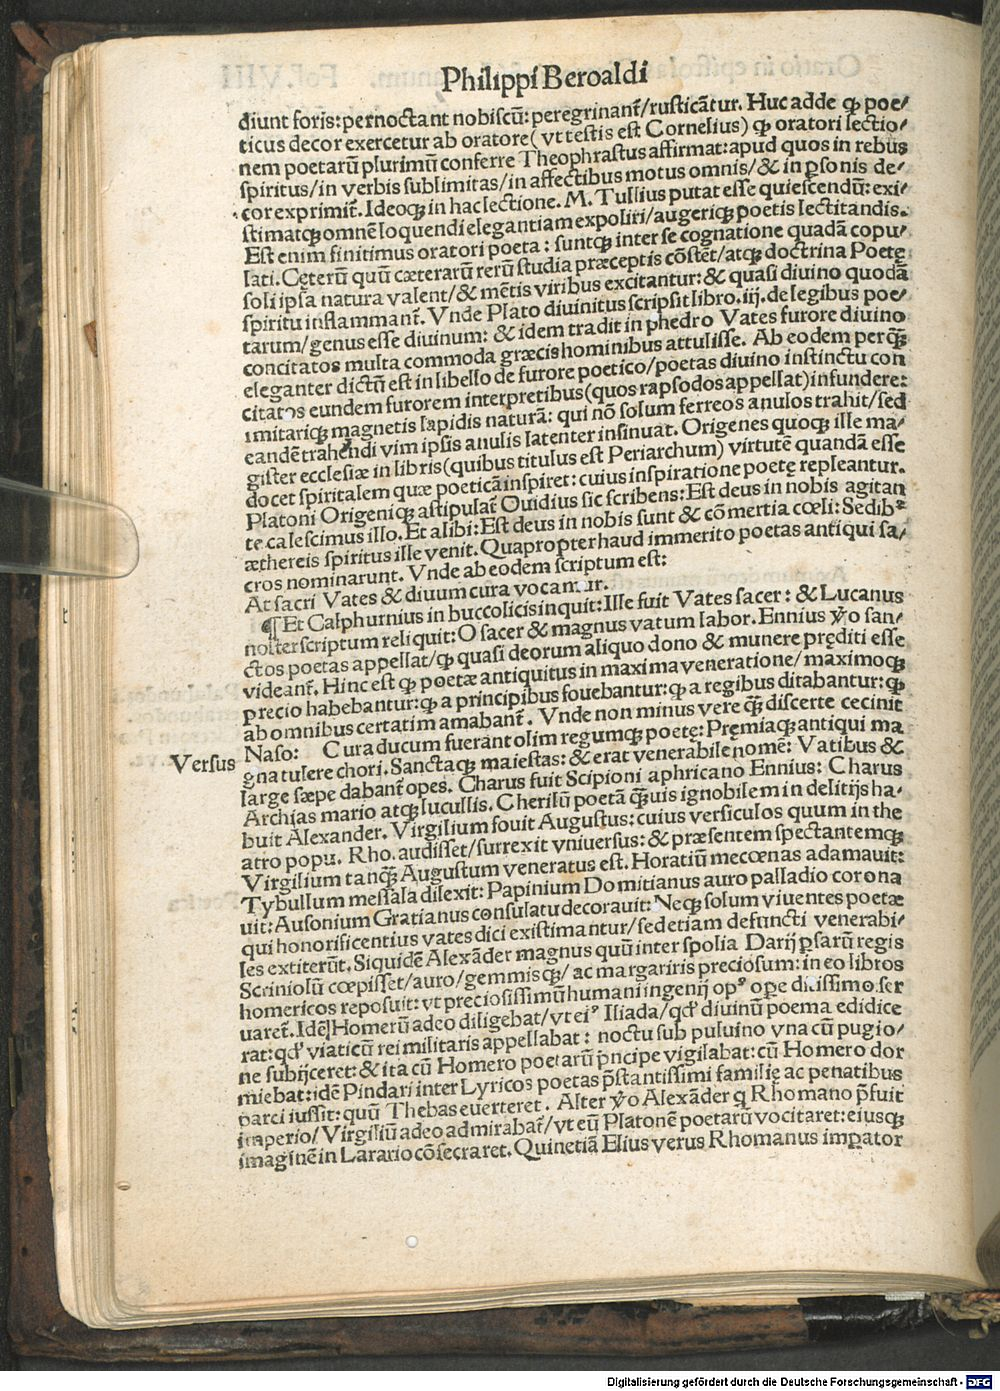 Philippi Beroaldi
diunt foris: pernoctant nobiscū: peregrinant᷑/rusticāt᷑ur. Huc adde ꝙ poe⸗
ticus decor exercetur ab oratore( vt testis est Cornelius) ꝙ oratori lectio⸗
nem poetarū plurimū conferre Theophrastus affirmat: apud quos in rebus
spiritus/in verbis sublimitas/in affectibus motus omnis/& in ꝑsonis de⸗
cor exprimit᷑. Ideoqꝫ in hac lectione. M. Tullius putat esse quiescendū: exi⸗
stimatqꝫ omnē loquendi elegantiam expoliri/augeriqꝫ poetis lectitandis.
Est enim finitimus oratori poeta: suntqꝫ inter se cognatione quadā copu⸗
lati. Cęterū quū cæterarū rerū studia præceptis cōstēt/atqꝫ doctrina Poetę
soli ipsa natura valent/& mētis viribus excitantur: & quasi diuino quodā
spiritu inflammant᷑. Vnde Plato diuinitus scripsit libro. iij. de legibus poe⸗
tarum/genus esse diuinum: & idem tradit in phedro Vates furore diuino
concitatos multa commoda græcis hominibus attulisse. Ab eodem perqꝫ̄
eleganter dictū est in libello de furore poetico/poetas diuino instinctu con
citatos eundem furorem interpretibus(quos rapsodos appellat)infundere:
imitariqꝫ magnetis lapidis naturā: qui nō solum ferreos anulos trahit/sed
eandē trahendi vim ipsis anulis latenter insinuat. Origenes quoqꝫ ille ma⸗
gister ecclesiæ in libris(quibus titulus est Periarchum) virtutē quandā esse
docet spiritalem quæ poeticā inspiret: cuius inspiratione poetę repleantur.
Platoni Origeniqꝫ astipulat᷑ Ouidius sic scribens: Est deus in nobis agitan
te calescimus illo. Et alibi: Est deus in nobis sunt & cōmertia cœli: Sedibꝰ
æthereis spiritus ille venit. Quapropter haud immerito poetas antiqui sa⸗
cros nominarunt. Vnde ab eodem scriptum est:
At sacri Vates & diuum cura vocamur.
¶ Et Calphurnius in buccolicis inquit: Ille fuit Vates sacer: & Lucanus
noster scriptum reliquit: O sacer & magnus vatum labor. Ennius ꝟo san⸗
ctos poetas appellat/ꝙ quasi deorum aliquo dono & munere pręditi esse
videant᷑. Hinc est ꝙ poetæ antiquitus in maxima veneratione/maximoqꝫ
precio habebantur: ꝙ a principibus fouebantur: ꝙ a regibus ditabantur: ꝙ
ab omnibus certatim amabant᷑. Vnde non minus vere qꝫ̄ discerte cecinit
Versus Naso: Cura ducum fuerant olim regumqꝫ poetę: Pręmiaqꝫ antiqui ma
gna tulere chori. Sanctaqꝫ maiestas: & erat venerabile nomē: Vatibus &
large sæpe dabant᷑ opes. Charus fuit Scipioni aphricano Ennius: Charus
Archias mario atqꝫ lucullis. Cherilū poetā qꝫ̄uis ignobilem in delitijs ha⸗
buit Alexander. Virgilium fouit Augustus: cuius versiculos quum in the
atro popu. Rho. audisset/surrexit vniuersus: & præsentem spectantemqꝫ
Virgilium tanqꝫ̄ Augustum veneratus est. Horatiū mecœnas adamauit:
Tybullum messala dilexit: Papinium Domitianus auro palladio corona
uit: Ausonium Gratianus consulatu decorauit: Neqꝫ solum viuentes poetæ
qui honorificentius vates dici existimantur/sed etiam defuncti venerabi⸗
les extiterūt. Siquidē Alexāder magnus quū inter spolia Darij ꝑsarū regis
Scriniolū cœpisset/auro/gemmisqꝫ/ ac margariris preciosum: in eo libros
homericos reposuit: vt preciosissimū humani ingenij opꝰ oꝑe ditissimo ser
uaret᷑. Idē Homerū adeo diligebat/vt eiꝰ Iliada/qd' diuinū poema edidice
rat: qd' viaticū rei militaris appellabat: noctu sub puluino vna cū pugio⸗
ne subijceret: & ita cū Homero poetarū p̄ncipe vigilabat: cū Homero dor
miebat: idē Pindari inter Lyricos poetas p̄stantissimi familię ac penatibus
parci iussit: quū Thebas euerteret. Alter ꝟo Alexāder q Rhomano p̄fuit
imperio/Virgiliū adeo admirabat᷑/vt eū Platonē poetarū vocitaret: eiusqꝫ
imaginē in Larario cōsecraret. Quinetiā Elius verus Rhomanus imꝑator
Digitalisierung gefördert durch die Deutsche Forschungsgemeinschaft - DFG